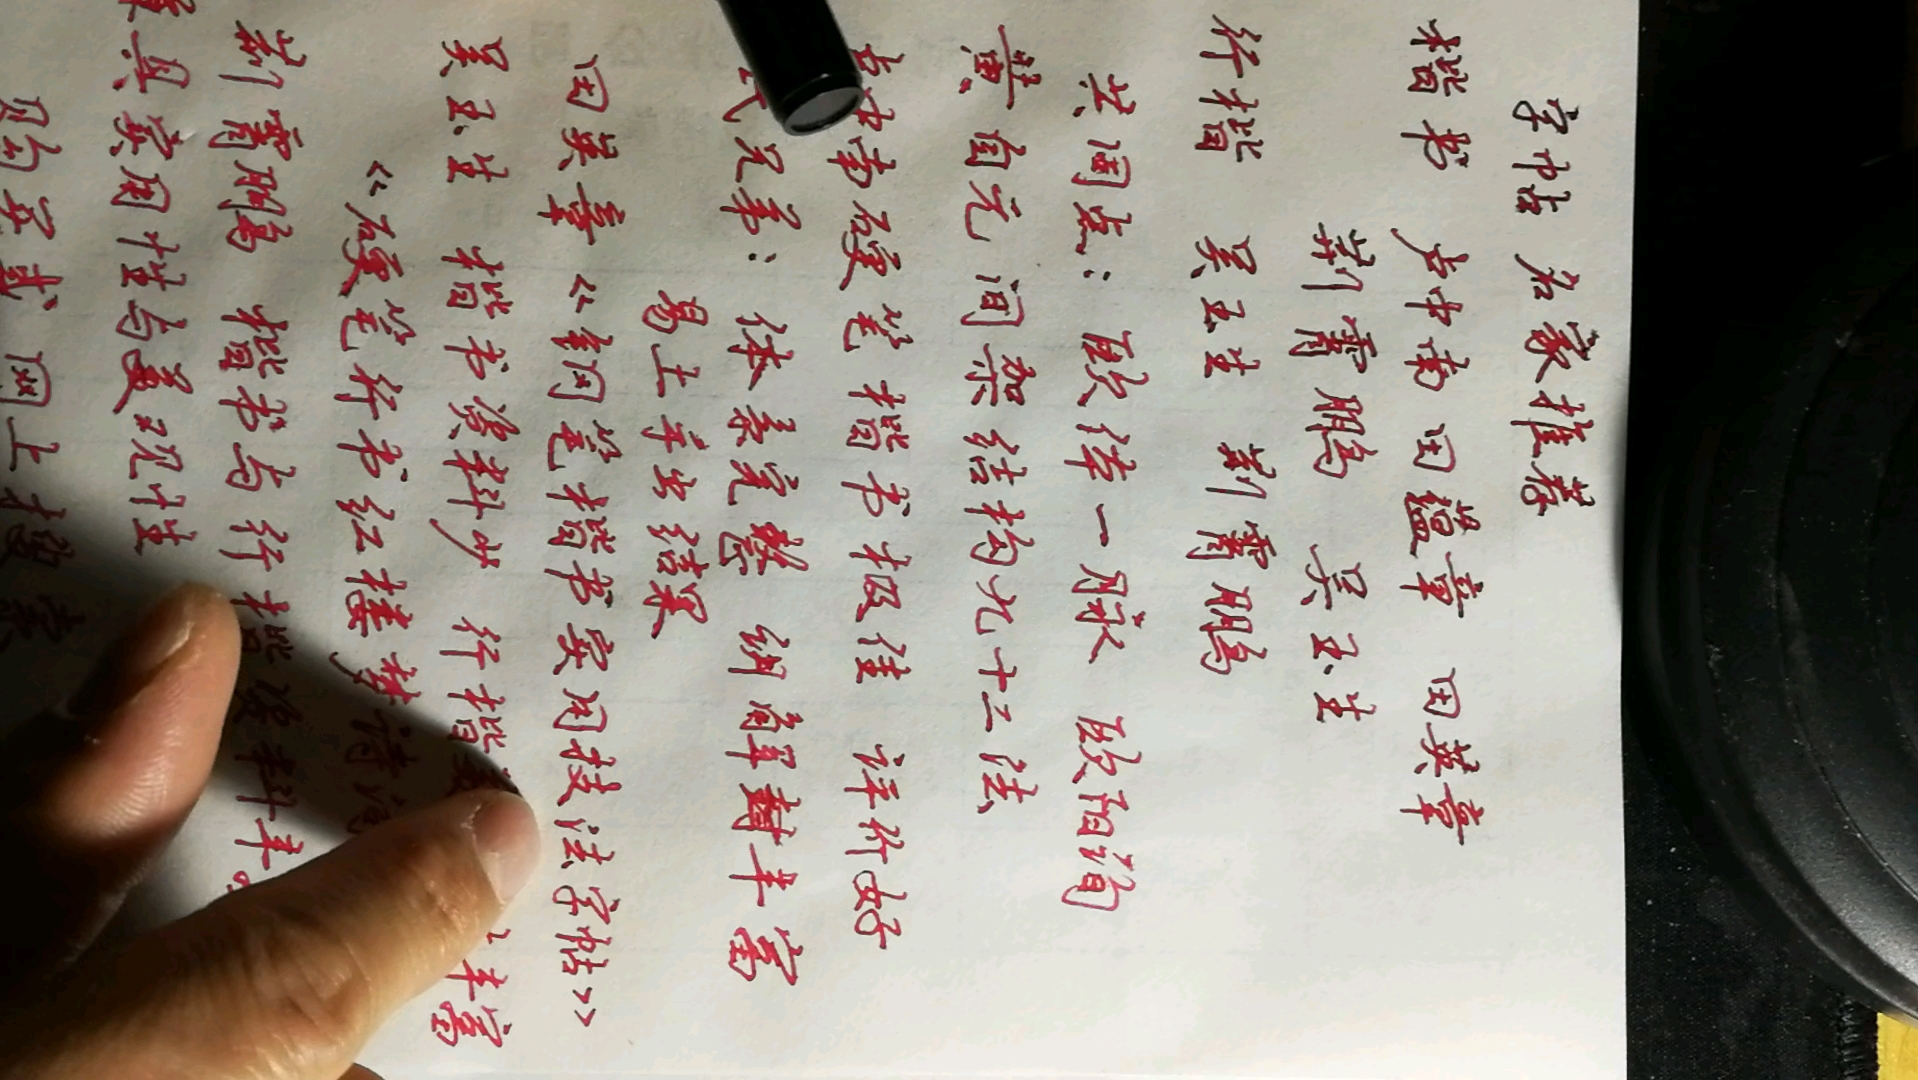 字帖 名家推荐
楷书 卢中南 田蕴章 田英章
荆霄鹏 吴玉生
行楷 吴玉生 荆霄鹏
共同点: 欧体一脉 欧阳询
黄自元间架结构九十二法
卢中南硬笔楷书极佳 评价好
氏兄弟: 体系完整 钢 丰富
易上手出结果
田英章《钢笔楷书实用技法字帖》
吴玉生 楷书资料少 行楷 丰富
《硬笔行书红楼梦诗词
荆霄鹏 楷书与行楷资料丰
具实用性与美观性
网上搜索